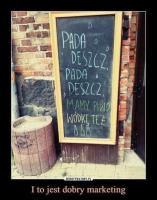 PADA
DESZCZ,
PADA
DESZCZ,
MAMY PIWO
WÓDKĘ TEŻ
I to jest dobry marketing